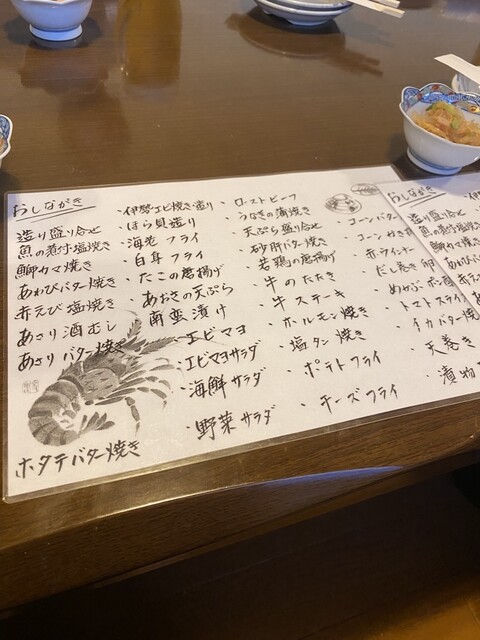 おしながき
造り盛り合せ
魚の煮付・塩焼き
鰤カマ焼き
あわびバター焼き
赤えび塩焼き
あさり酒むし
あさりバター焼き
ホタテバター焼き
・伊勢エビ焼き・造り
・ほら貝造り
・海老フライ
・白身フライ
・たこの唐揚げ
・あおさの天ぷら
・南蛮漬け
・エビマヨ
・エビマヨサラダ
・海鮮サラダ
・野菜サラダ
・ローストビーフ
・うなぎの蒲焼き
・天ぷら盛り合せ
・砂肝バター焼き
・若鶏の唐揚げ
・牛のたたき
・牛ステーキ
・ホルモン焼き
・塩タン焼き
・ポテトフライ
・チーズフライ
・コーンバター
・コーンかき
・赤ウインナー
・だし巻き卵
・めかぶポン酢
・トマトスライ
・イカバター焼
・天巻き
・漬物
おしながき
造り盛り合せ
魚の煮付・塩焼
鰤カマ焼き
あわびバ
赤えび
あさり
あさり